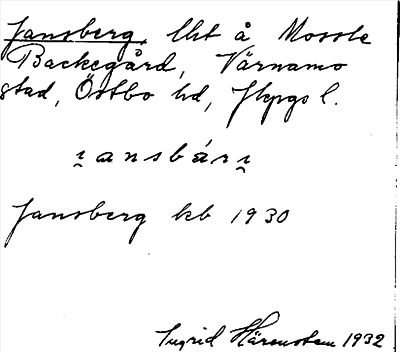 Jansberg, lht å Mossle
Backegård, Värnamo
stad, Östbo hd, Jkpgs l.
ı̯ansbárı̯
Jansberg kb 1930
Ingrid Härenstam 1932